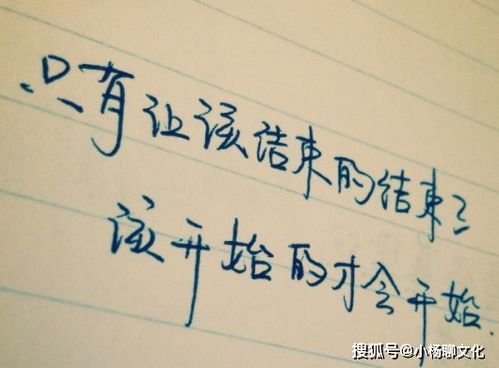 只有让该结束的结束了
该开始的才会开始.
搜狐号@小杨聊文化